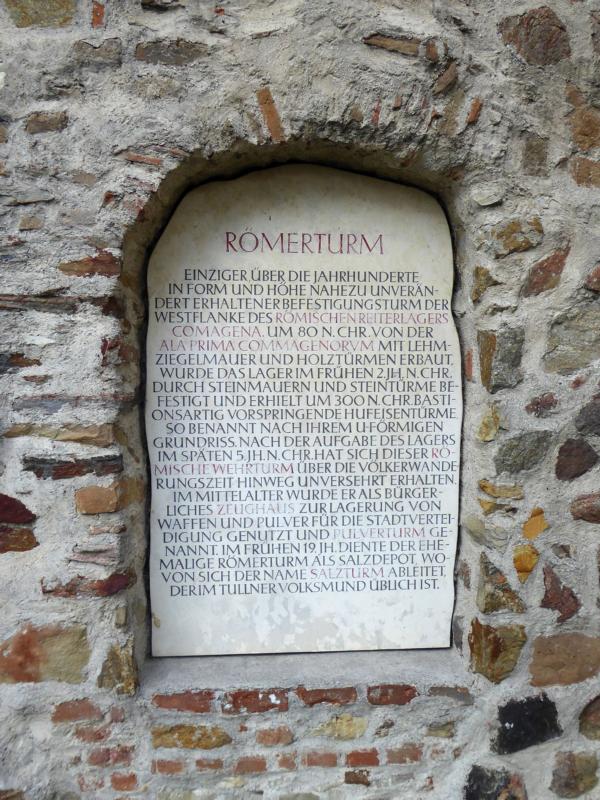 RÖMERTURM
EINZIGER ÜBER DIE JAHRHUNDERTE
IN FORM UND HÖHE NAHEZU UNVERÄN-
DERT ERHALTENER BEFESTIGUNGSTURM DER
WESTFLANKE DES RÖMISCHEN REITERLAGERS
COMAGENA. UM 80 N. CHR. VON DER
ALA PRIMA COMMAGENORVM MIT LEHM-
ZIEGELMAUER UND HOLZTÜRMEN ERBAUT,
WURDE DAS LAGER IM FRÜHEN 2. JH. N. CHR.
DURCH STEINMAUERN UND STEINTÜRME BE-
FESTIGT UND ERHIELT UM 300 N. CHR. BASTI-
ONSARTIG VORSPRINGENDE HUFEISENTÜRME
SO BENANNT NACH IHREM U-FÖRMIGEN
GRUNDRISS. NACH DER AUFGABE DES LAGERS
IM SPÄTEN 5. JH. N. CHR. HAT SICH DIESER RÖ-
MISCHE WEHRTURM ÜBER DIE VÖLKERWANDE
RUNGSZEIT HINWEG UNVERSEHRT ERHALTEN.
IM MITTELALTER WURDE ER ALS BÜRGER-
LICHES ZEUGHAUS ZUR LAGERUNG VON
WAFFEN UND PULVER FÜR DIE STADTVERTEI-
DIGUNG GENUTZT UND PULVERTURM GE-
NANNT. IM FRÜHEN 19. JH. DIENTE DER EHE-
MALIGE RÖMERTURM ALS SALZDEPOT, WO-
VON SICH DER NAME SALZTURM ABLEITET,
DER IM TULLNER VOLKSMUND ÜBLICH IST.